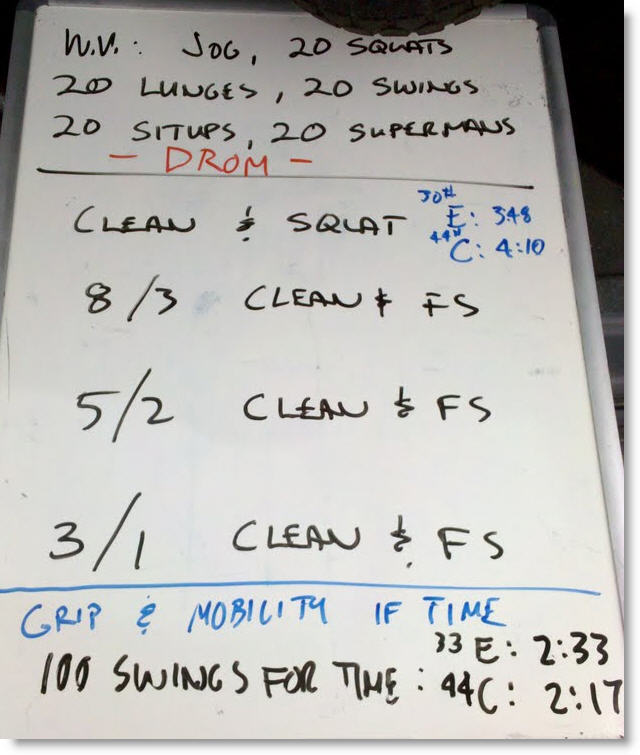 W.U.: JOG, 20 SQUATS
20 LUNGES, 20 SWINGS
20 SITUPS, 20 SUPERMANS
- DROM -
CLEAN & SQUAT
30# E: 3:48
44# C: 4:10
8/3 CLEAN & FS
5/2 CLEAN & FS
3/1 CLEAN & FS
GRIP & MOBILITY IF TIME
33 E: 2:33
100 SWINGS FOR TIME: 44 C: 2:17